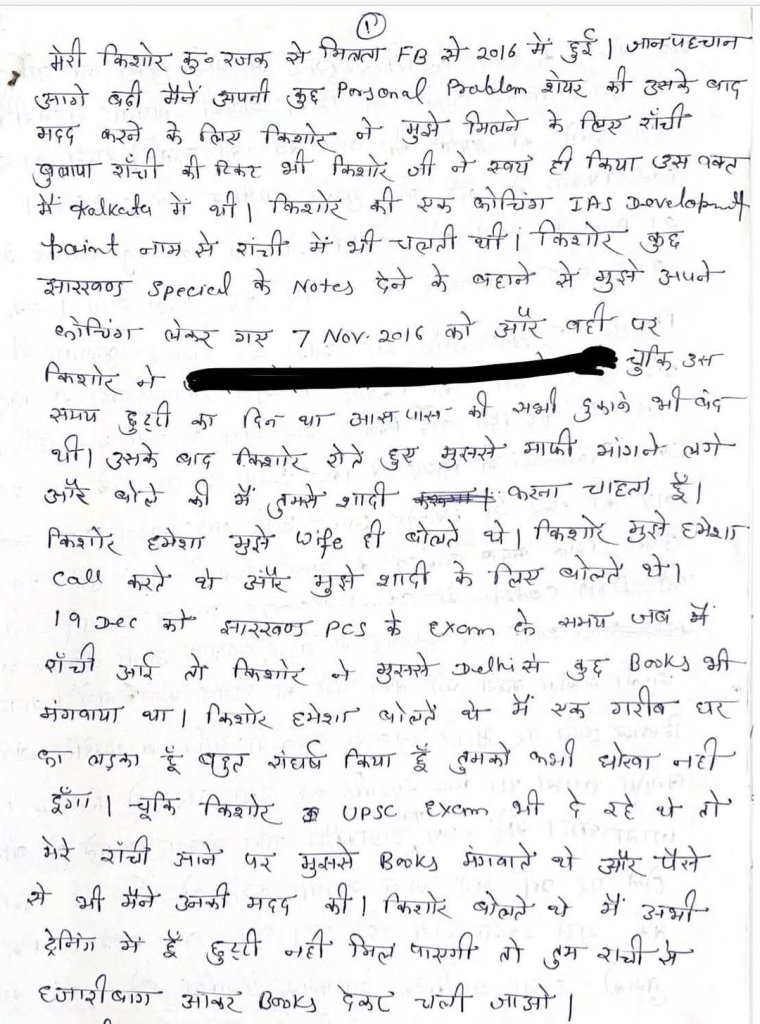 1
मेरी किशोर कु० रजक से मिलना FB से 2016 में हुई। जान पहचान
आगे बढी मैंने अपनी कुछ Personal Problem शेयर की उसके बाद
मदद करने के लिए किशोर ने मुझे मिलने के लिए राँची
बुलाया राँची की टिकट भी किशोर जी ने स्वयं ही किया उस वक्त
मैं Kolkata में थी। किशोर की एक कोचिंग IAS Development
point नाम से रांची में भी चलती थी। किशोर कुछ
झारखण्ड Special के Notes देने के बहाने से मुझे अपने
कोचिंग लेकर गए 7 Nov. 2016 को और वही पर
किशोर ने चुकि उस
समय छुट्टी का दिन था आस पास की सभी दुकाने भी बंद
थी। उसके बाद किशोर रोते हुए मुझसे माफी मांगने लगे
और बोले की मैं तुमसे शादी करना चाहता हूँ।
किशोर हमेशा मुझे wife ही बोलते थे। किशोर मुझे हमेशा
Call करते थे और मुझे शादी के लिए बोलते थे।
19 Dec को झारखण्ड PCS के Exam के समय जब मैं
राँची आई तो किशोर ने मुझसे Delhi से कुछ Books भी
मंगवाया था। किशोर हमेशा बोलते थे मैं एक गरीब घर
का लड़का हूँ बहुत संघर्ष किया हूँ तुमको कभी धोखा नही
दूँगा। चूकि किशोर UPSC Exam भी दे रहे थे तो
मेरे राँची आने पर मुझसे Books मंगवाते थे और पैसे
से भी मैंने उनकी मदद की। किशोर बोलते थे मैं अभी
ट्रेनिंग में हूँ छुट्टी नही मिल पाएगी तो तुम राची से
हजारीबाग आकर Books देकर चली जाओ।